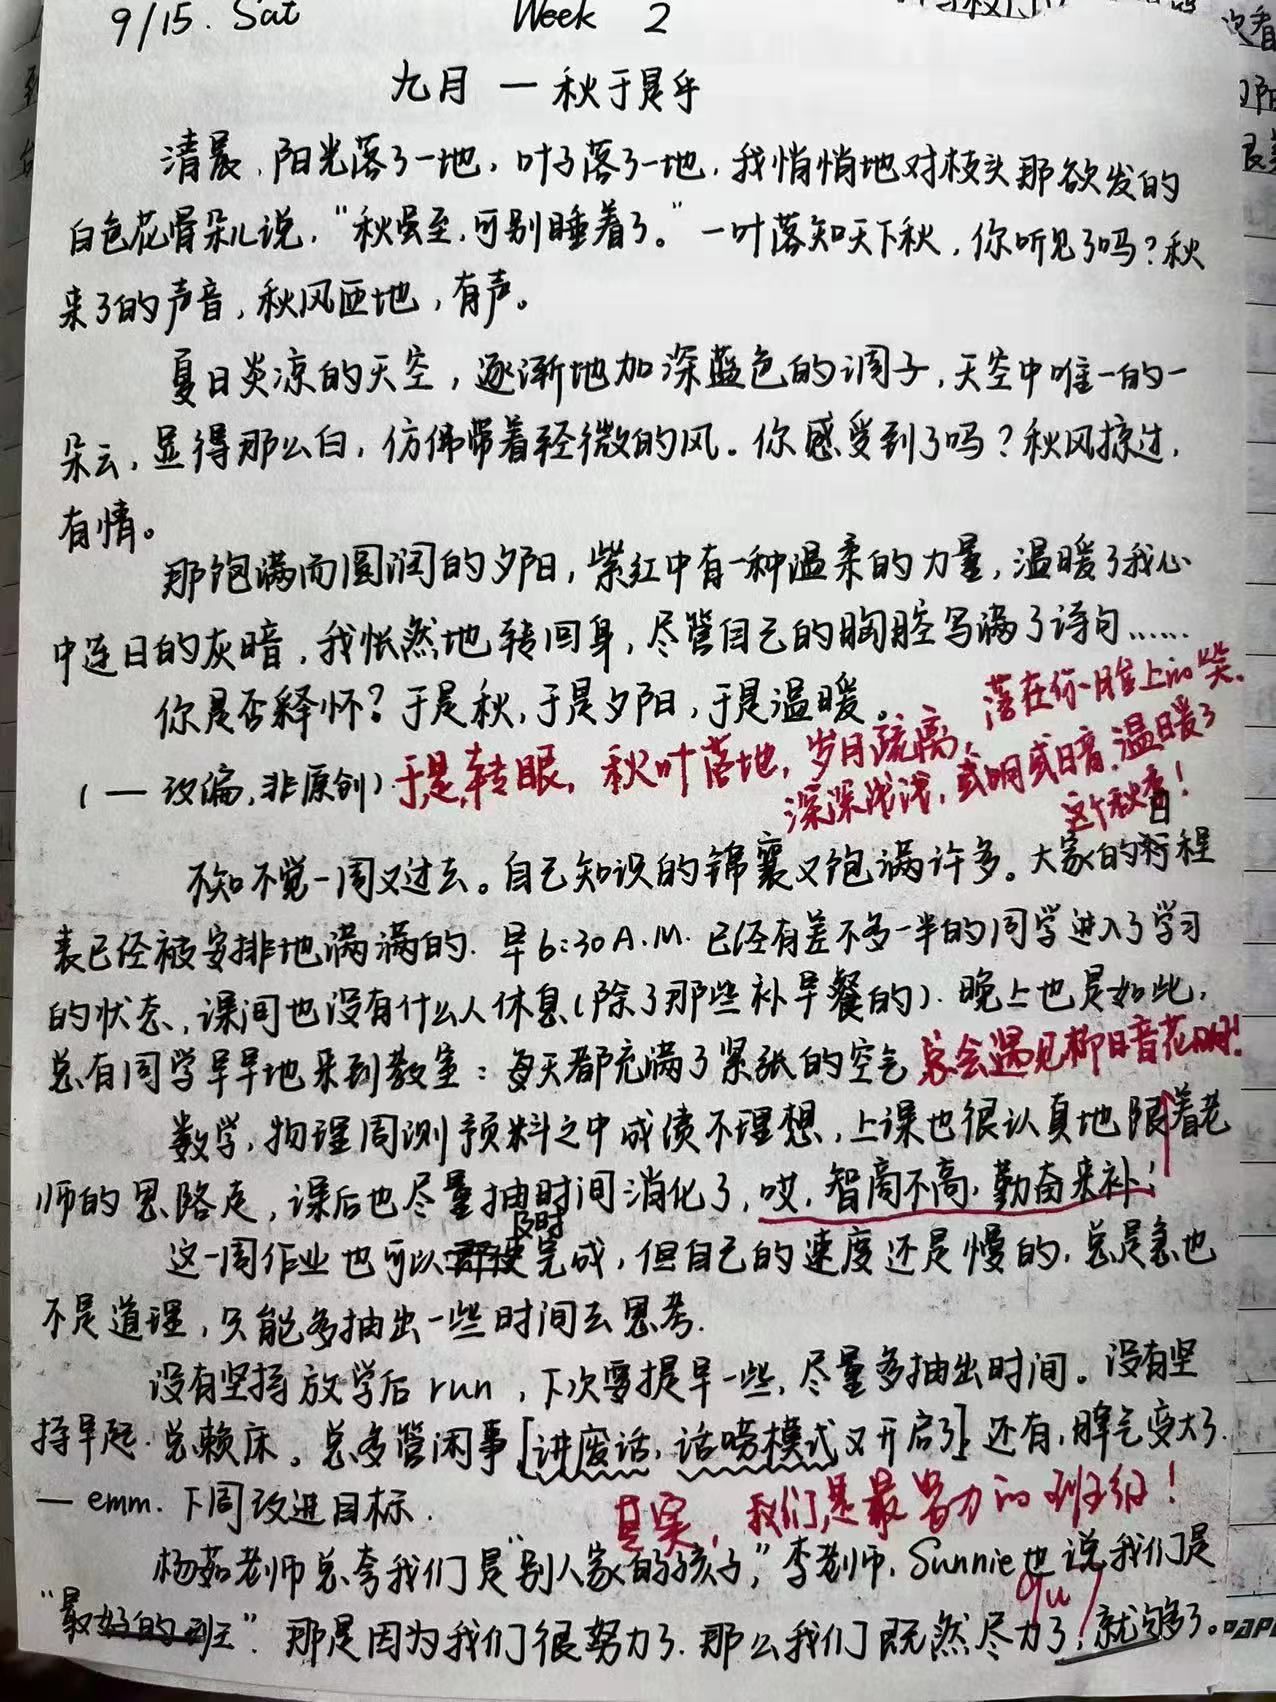 9/15. Sat Week 2
九月 — 秋于是乎
清晨,阳光落了一地,叶子落了一地,我悄悄地对枝头那欲发的
白色花骨朵儿说,“秋虽至,可别睡着了。”一叶落知天下秋,你听见了吗?秋
来了的声音,秋风匝地,有声。
夏日炎凉的天空,逐渐地加深蓝色的调子,天空中唯一的一
朵云,显得那么白,仿佛带着轻微的风。你感受到了吗?秋风掠过,
有情。
那饱满而圆润的夕阳,紫红中有一种温柔的力量,温暖了我心
中连日的灰暗,我怅然地转回身,尽管自己的胸腔写满了诗句……
你是否释怀?于是秋,于是夕阳,于是温暖。
(— 改编,非原创)
于是,转眼,秋叶落地,岁月疏离,落在你脸上的笑,
深深浅浅,或明或暗,温暖了
这个秋日!
不知不觉一周又过去。自己知识的锦囊又饱满许多。大家的行程
表已经被安排地满满的.早6:30A.M.已经有差不多一半的同学进入了学习
的状态,课间也没有什么人休息(除了那些补早餐的).晚上也是如此,
总有同学早早地来到教室:每天都充满了紧张的空气
总会遇见柳暗花明!
数学,物理周测预料之中成绩不理想,上课也很认真地跟着老
师的思路走,课后也尽量抽时间消化了,哎,智商不高,勤奋来补!
这一周作业也可以及时完成,但自己的速度还是慢的,总是急也
不是道理,只能多抽出一些时间去思考.
没有坚持放学后run,下次要提早一些,尽量多抽出时间。没有坚
持早起.总赖床。总多管闲事[讲废话,话唠模式又开启了]还有,脾气变大了.
— emm.下周改进目标.
其实,我们是最努力的班级!
杨茹老师总夸我们是“别人家的孩子”,李老师,Sunnie也说我们是
“最好的班”.那是因为我们很努力了.那么我们既然尽力了,就够了。